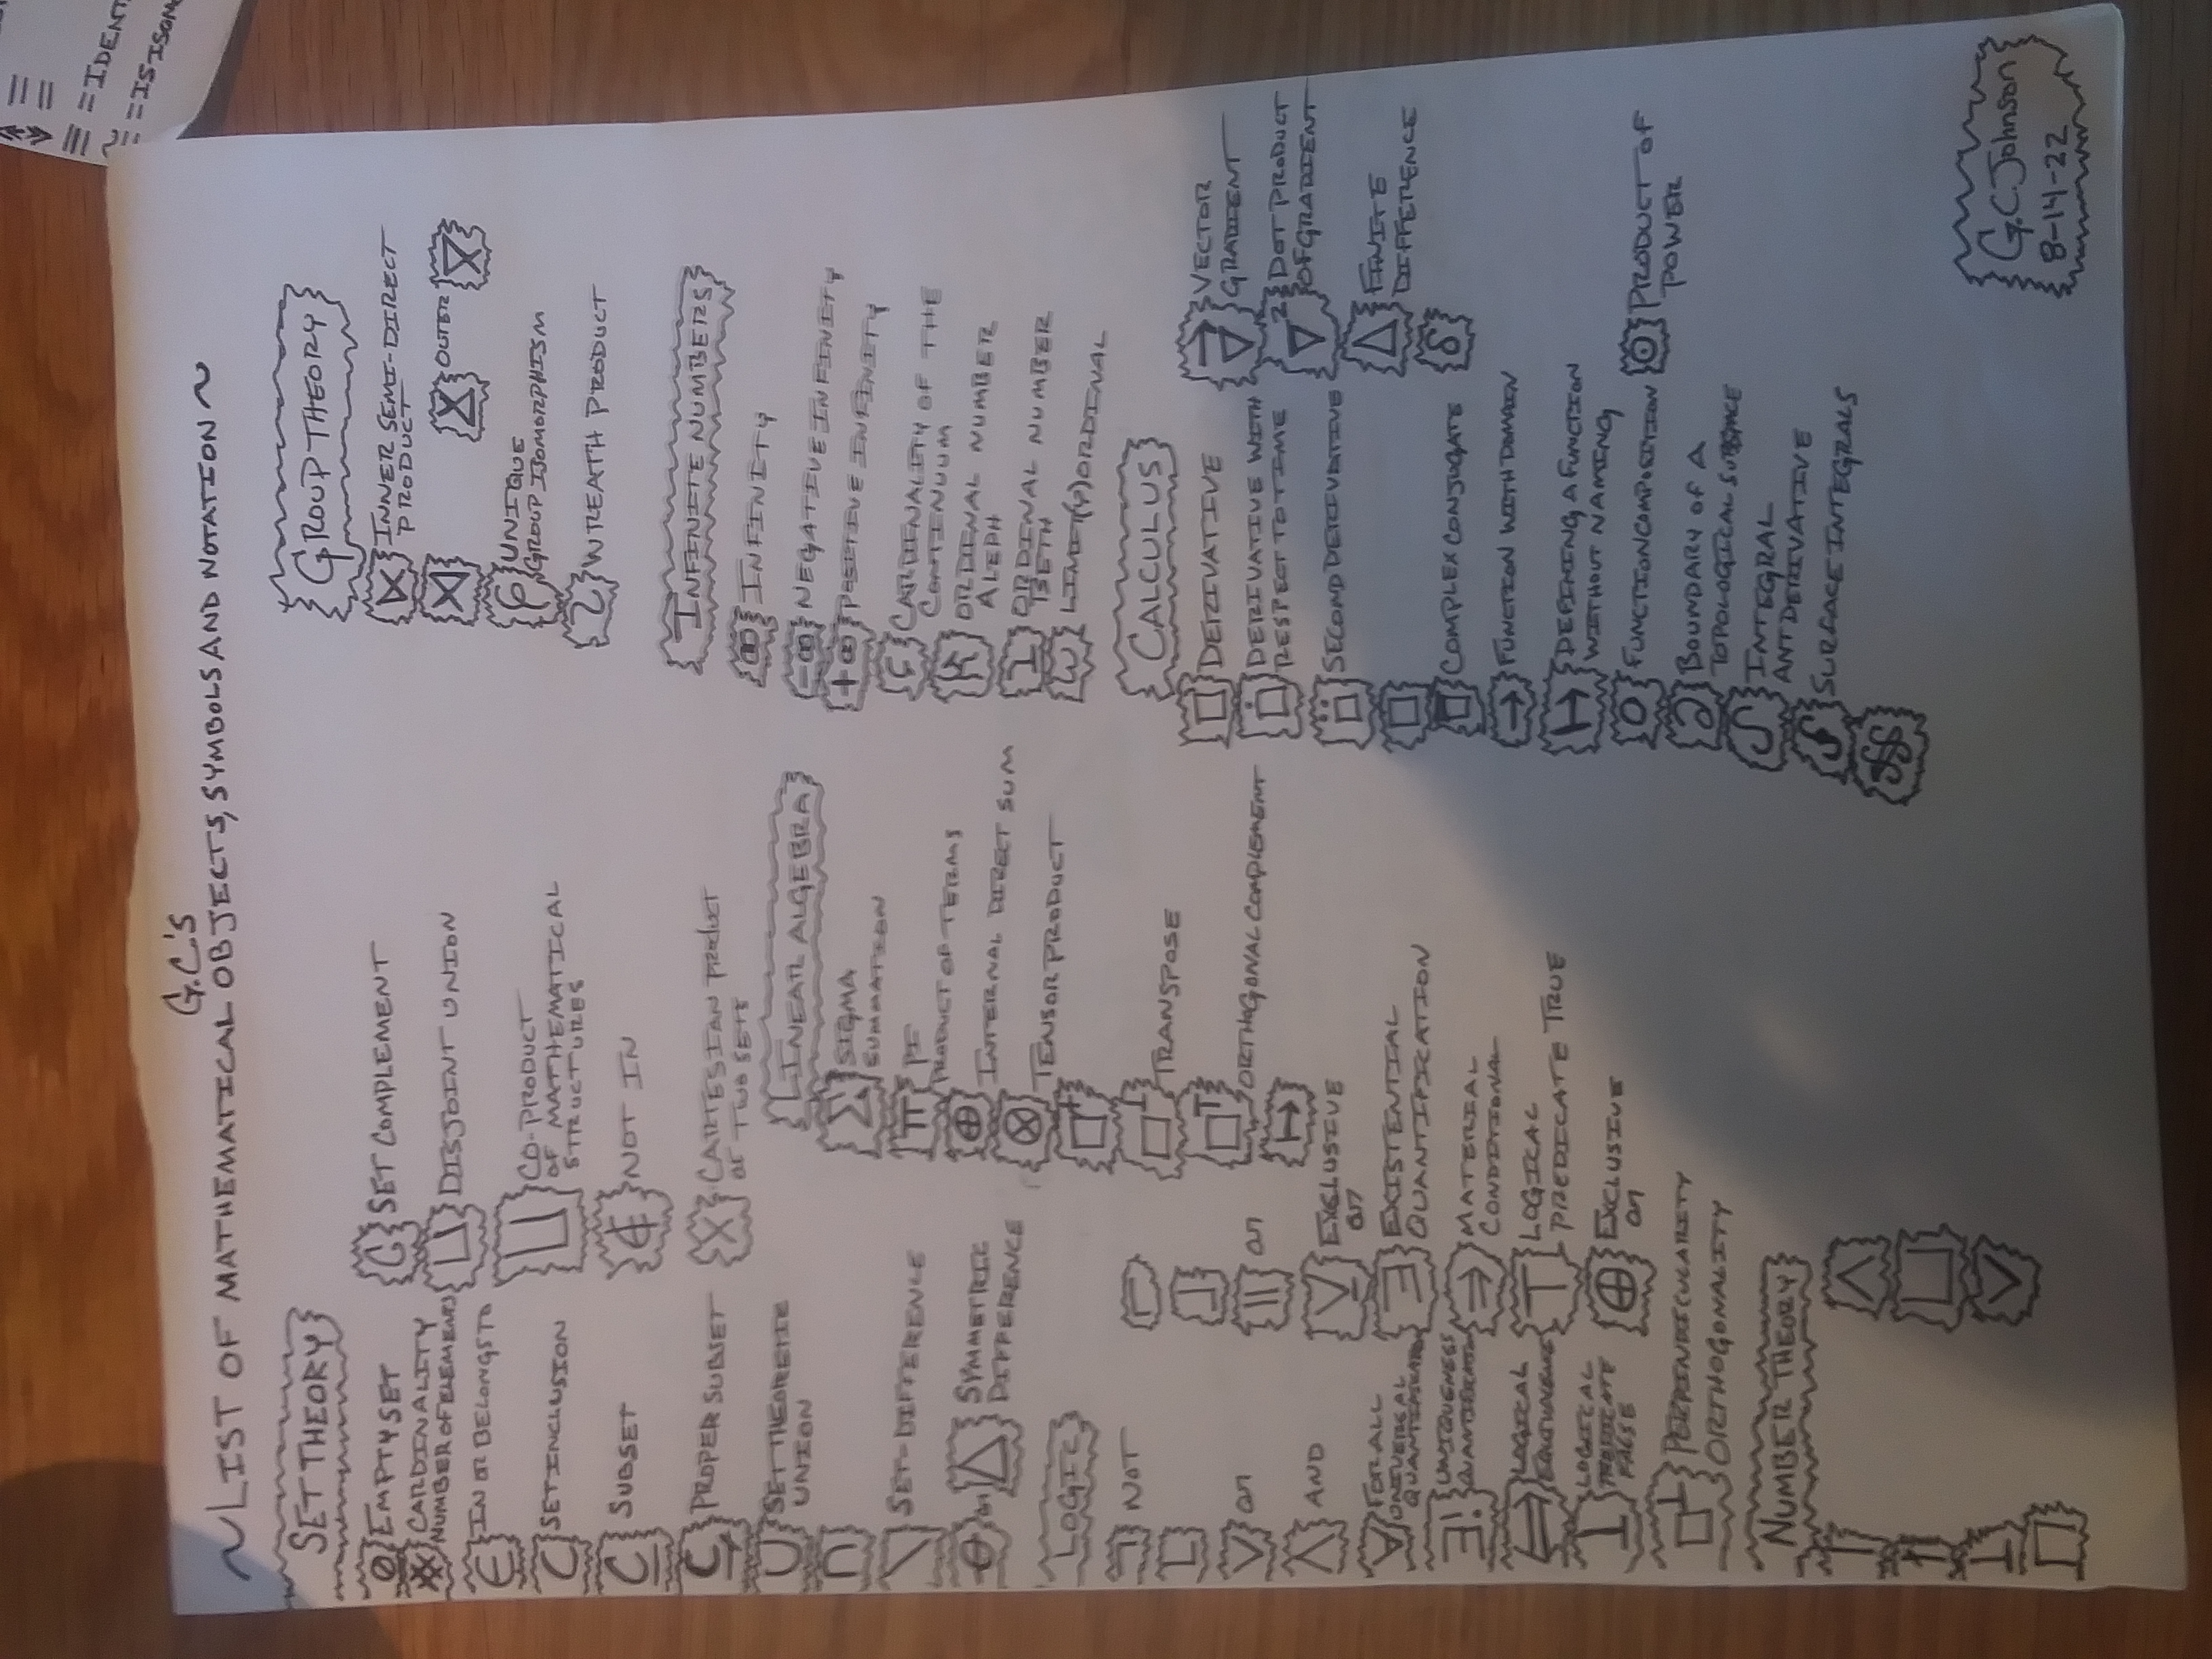 G.C.'S
~LIST OF MATHEMATICAL OBJECTS, SYMBOLS AND NOTATION~
SET THEORY
∅ EMPTY SET
# CARDINALITY
NUMBER OF ELEMENTS
∈ IN OR BELONGS TO
⊂ SET INCLUSION
⊆ SUBSET
⊊ PROPER SUBSET
∪ SET THEORETIC
UNION
∩
\ SET-DIFFERENCE
⊖ OR △ SYMMETRIC
DIFFERENCE
C SET COMPLEMENT
⊔ DISJOINT UNION
⊔ CO-PRODUCT
OF MATHEMATICAL
STRUCTURES
∉ NOT IN
X CARTESIAN PRODUCT
OF TWO SETS
LOGIC
¬ NOT
∨ OR
∧ AND
∀ FOR ALL
UNIVERSAL
QUANTIFICATION
∃! UNIQUENESS
QUANTIFICATION
⇔ LOGICAL
EQUIVALENCE
⊥ LOGICAL
PREDICATE
FALSE
□⊥ PERPINDICULARITY
ORTHOGONALITY
|| OR
⊻ EXCLUSIVE
OR
∃ EXISTENTIAL
QUANTIFICATION
⇒ MATERIAL
CONDITIONAL
⊤ LOGICAL
PREDICATE TRUE
⊕ EXCLUSIVE
OR
NUMBER THEORY
LINEAR ALGEBRA
Σ SIGMA
SUMMATION
π PI
PRODUCT OF TERMS
⊕ INTERNAL DIRECT SUM
⊗ TENSOR PRODUCT
TRANSPOSE
ORTHOGONAL COMPLEMENT
↦
GROUP THEORY
⋉ INNER SEMI-DIRECT
PRODUCT
⋊ OUTER
UNIQUE
GROUP ISOMORPHISM
WREATH PRODUCT
INFINITE NUMBERS
∞ INFINITY
-∞ NEGATIVE INFINITY
+∞ POSITIVE INFINITY
CARDINALITY OF THE
CONTINUUM
ORDINAL NUMBER
ALEPH
ORDINAL NUMBER
BETH
ω LIMIT(Y) ORDINAL
CALCULUS
DERIVATIVE
DERIVATIVE WITH
RESPECT TO TIME
SECOND DERIVATIVE
COMPLEX CONJUGATE
→ FUNCTION WITH DOMAIN
↦ DEFINING A FUNCTION
WITHOUT NAMING
○ FUNCTION COMPOSITION
∂ BOUNDARY OF A
TOPOLOGICAL SUBSPACE
∫ INTEGRAL
ANTDERIVATIVE
∮ SURFACE INTEGRALS
VECTOR
GRADIENT
∇2 DOT PRODUCT
OF GRADIENT
Δ FINITE
DIFFERENCE
δ
⊙ PRODUCT OF
POWER
G.C. Johnson
8-14-22
=
≡ = IDENT
≅ = IS ISOM